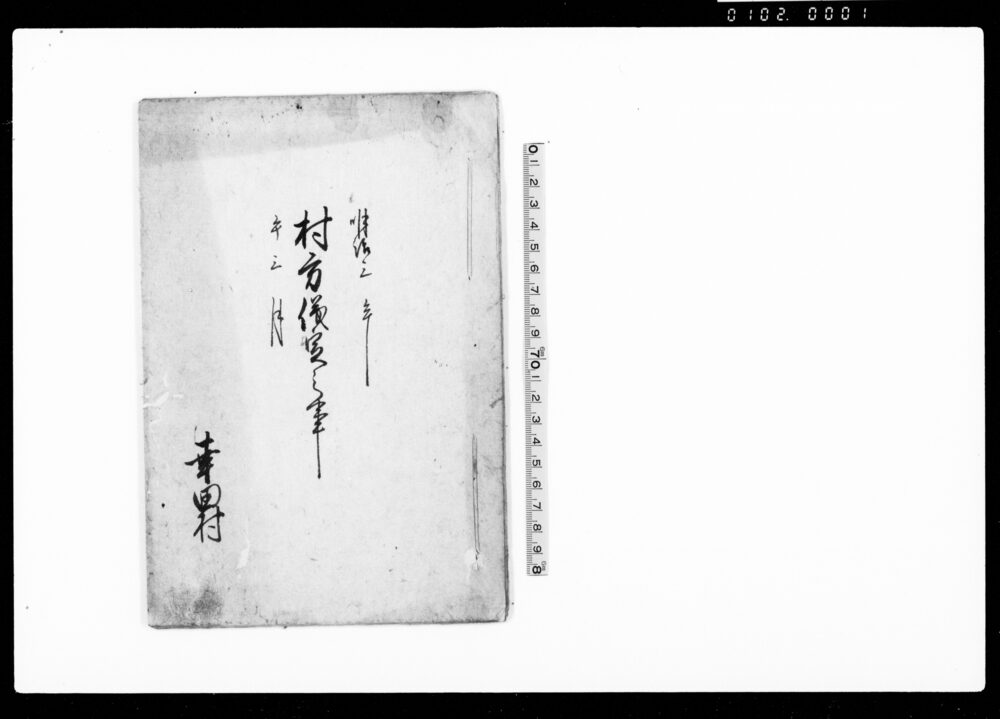 0102. 0001
明治三年
村方儀定之事
午三月
幸田村
0 1 2 3 4 5 6 7 8 9 10 1 2 3 4 5 6 7 8 9 8